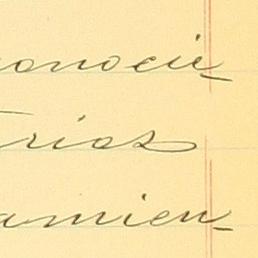 onocie_
rias
amien_